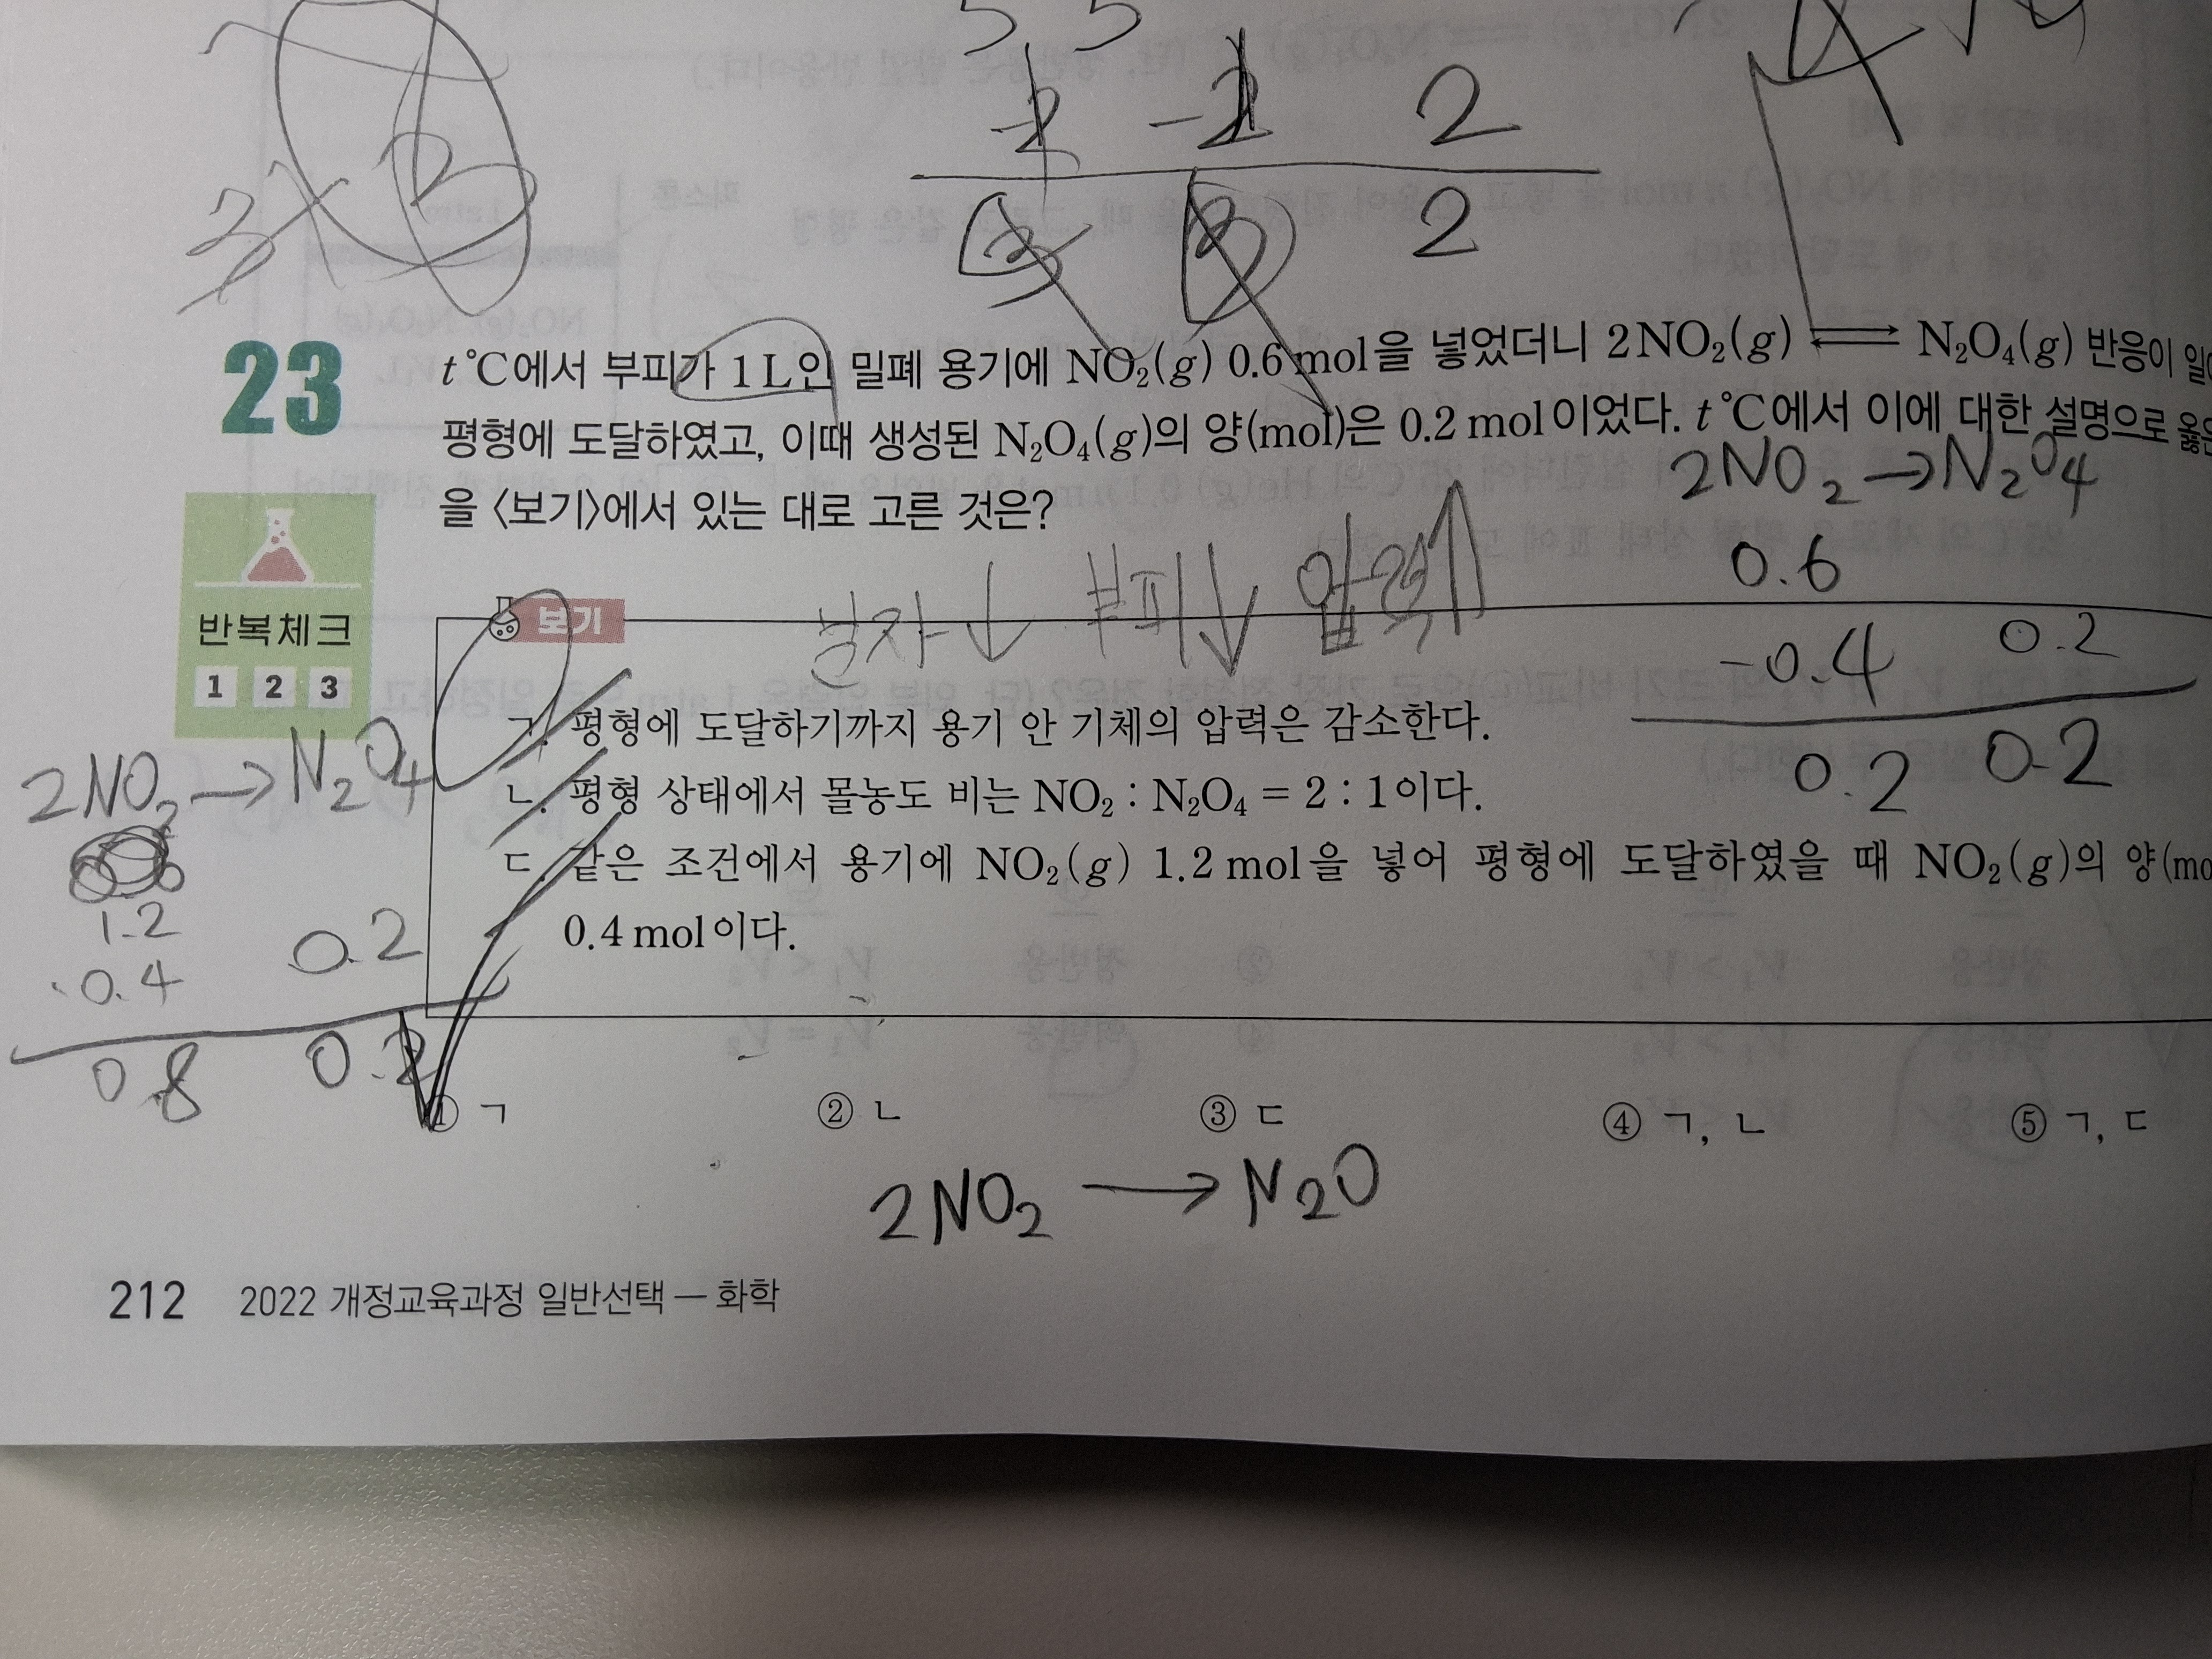 5 5
-2 -2 2
2
3 2
23
t ℃에서 부피가 1 L인 밀폐 용기에 NO₂(g) 0.6 mol을 넣었더니 2NO₂(g) ⇌ N₂O₄(g) 반응이
평형에 도달하였고, 이때 생성된 N₂O₄(g)의 양(mol)은 0.2 mol이었다. t ℃에서 이에 대한 설명으로
을 〈보기〉에서 있는 대로 고른 것은?
2NO₂ → N₂O₄
0.6
-0.4 0.2
0.2 0.2
반복체크
1 2 3
분자↓ 부피↓ 압력↑
보기
ㄱ. 평형에 도달하기까지 용기 안 기체의 압력은 감소한다.
ㄴ. 평형 상태에서 몰농도 비는 NO₂ : N₂O₄ = 2 : 1이다.
ㄷ. 같은 조건에서 용기에 NO₂(g) 1.2 mol을 넣어 평형에 도달하였을 때 NO₂(g)의 양(mo
0.4 mol이다.
2NO₂ → N₂O₄
1.2
-0.4 0.2
0.8 0.2
① ㄱ ② ㄴ ③ ㄷ ④ ㄱ, ㄴ ⑤ ㄱ, ㄷ
2NO₂ → N₂O
212 2022 개정교육과정 일반선택 — 화학